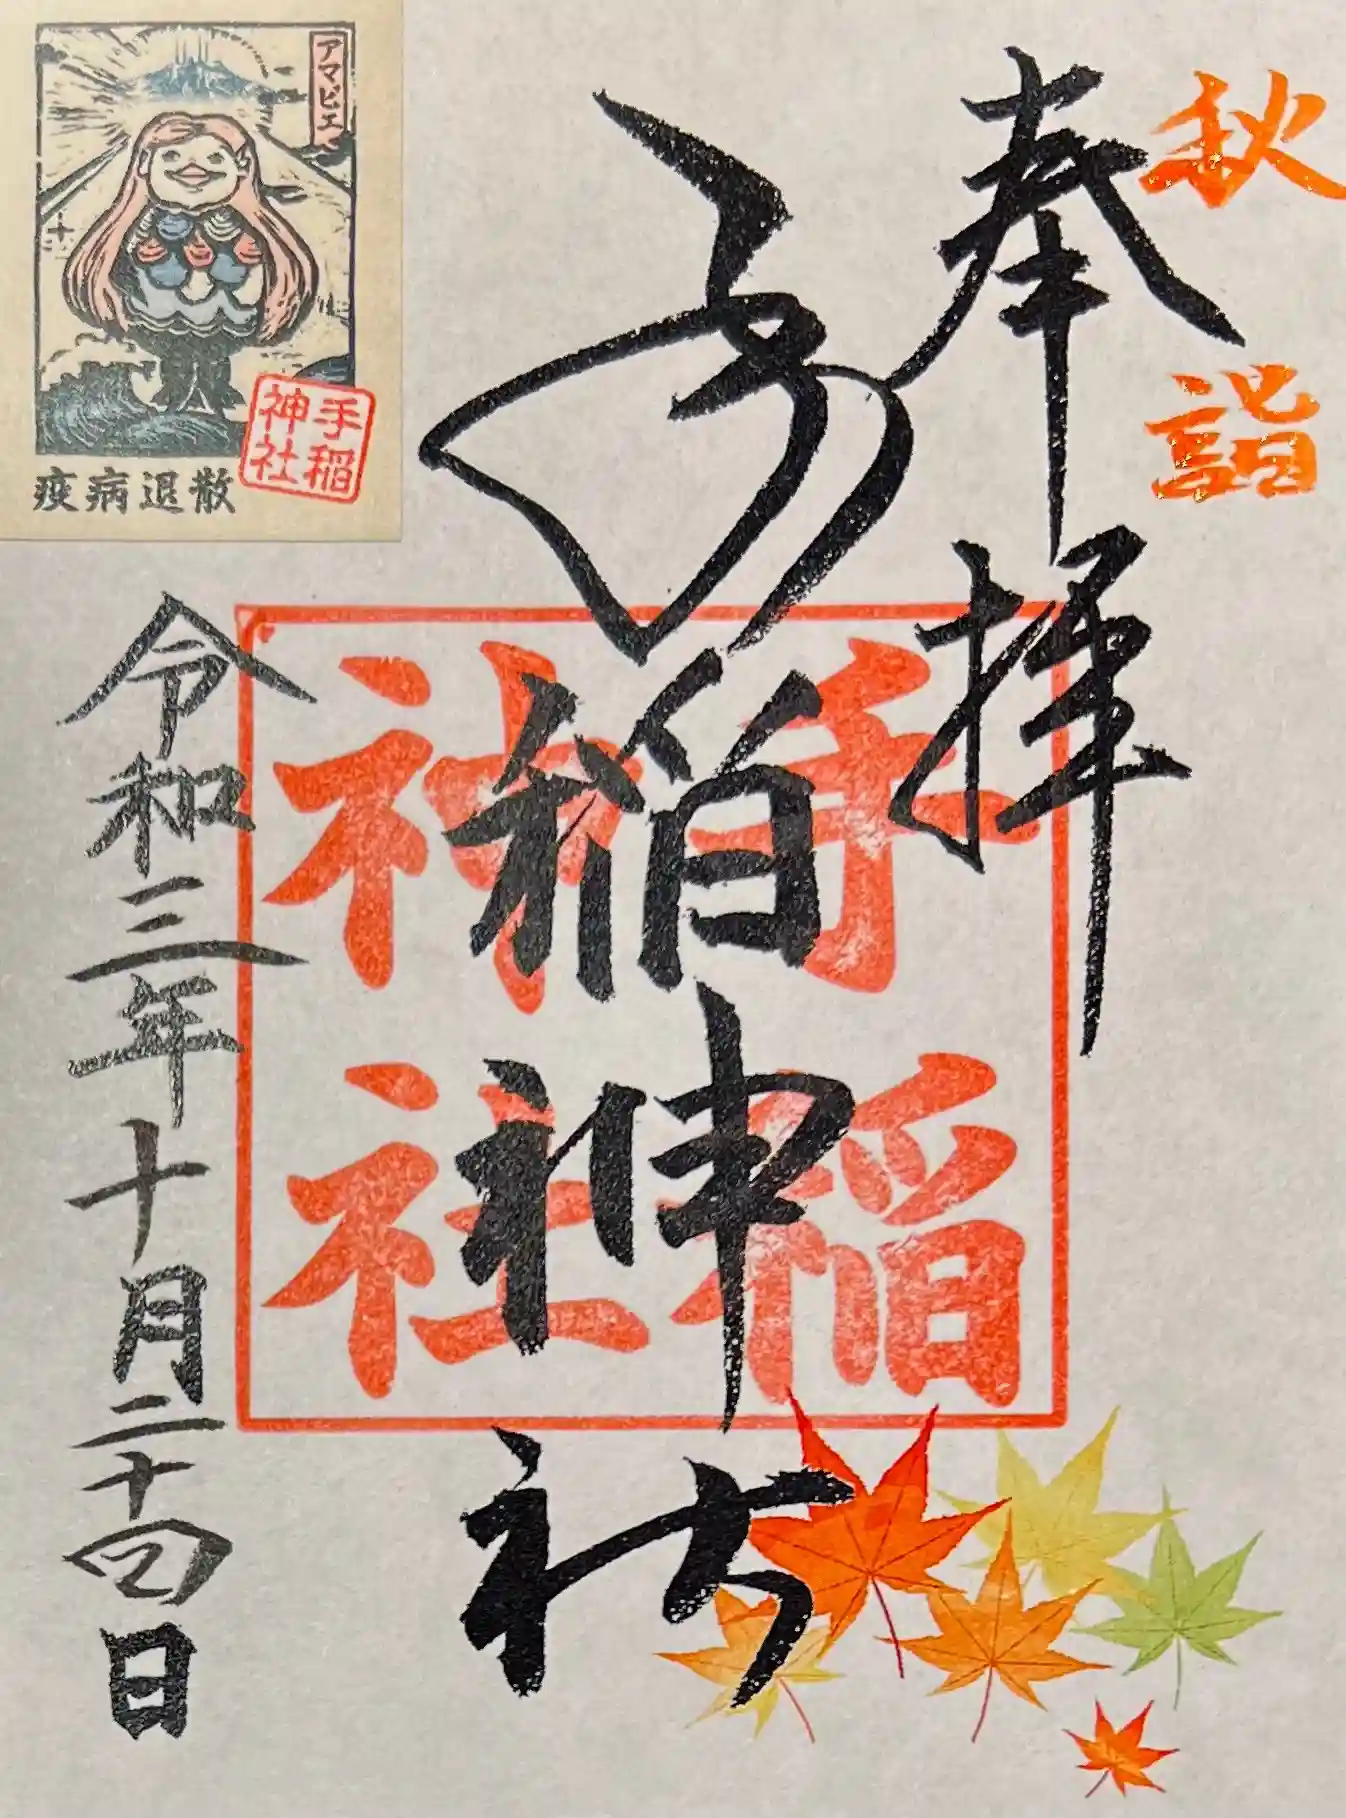 秋詣
奉拝
手稲神社
手稲
神社
令和三年十月二十四日
アマビエ
手稲
神社
疫病退散